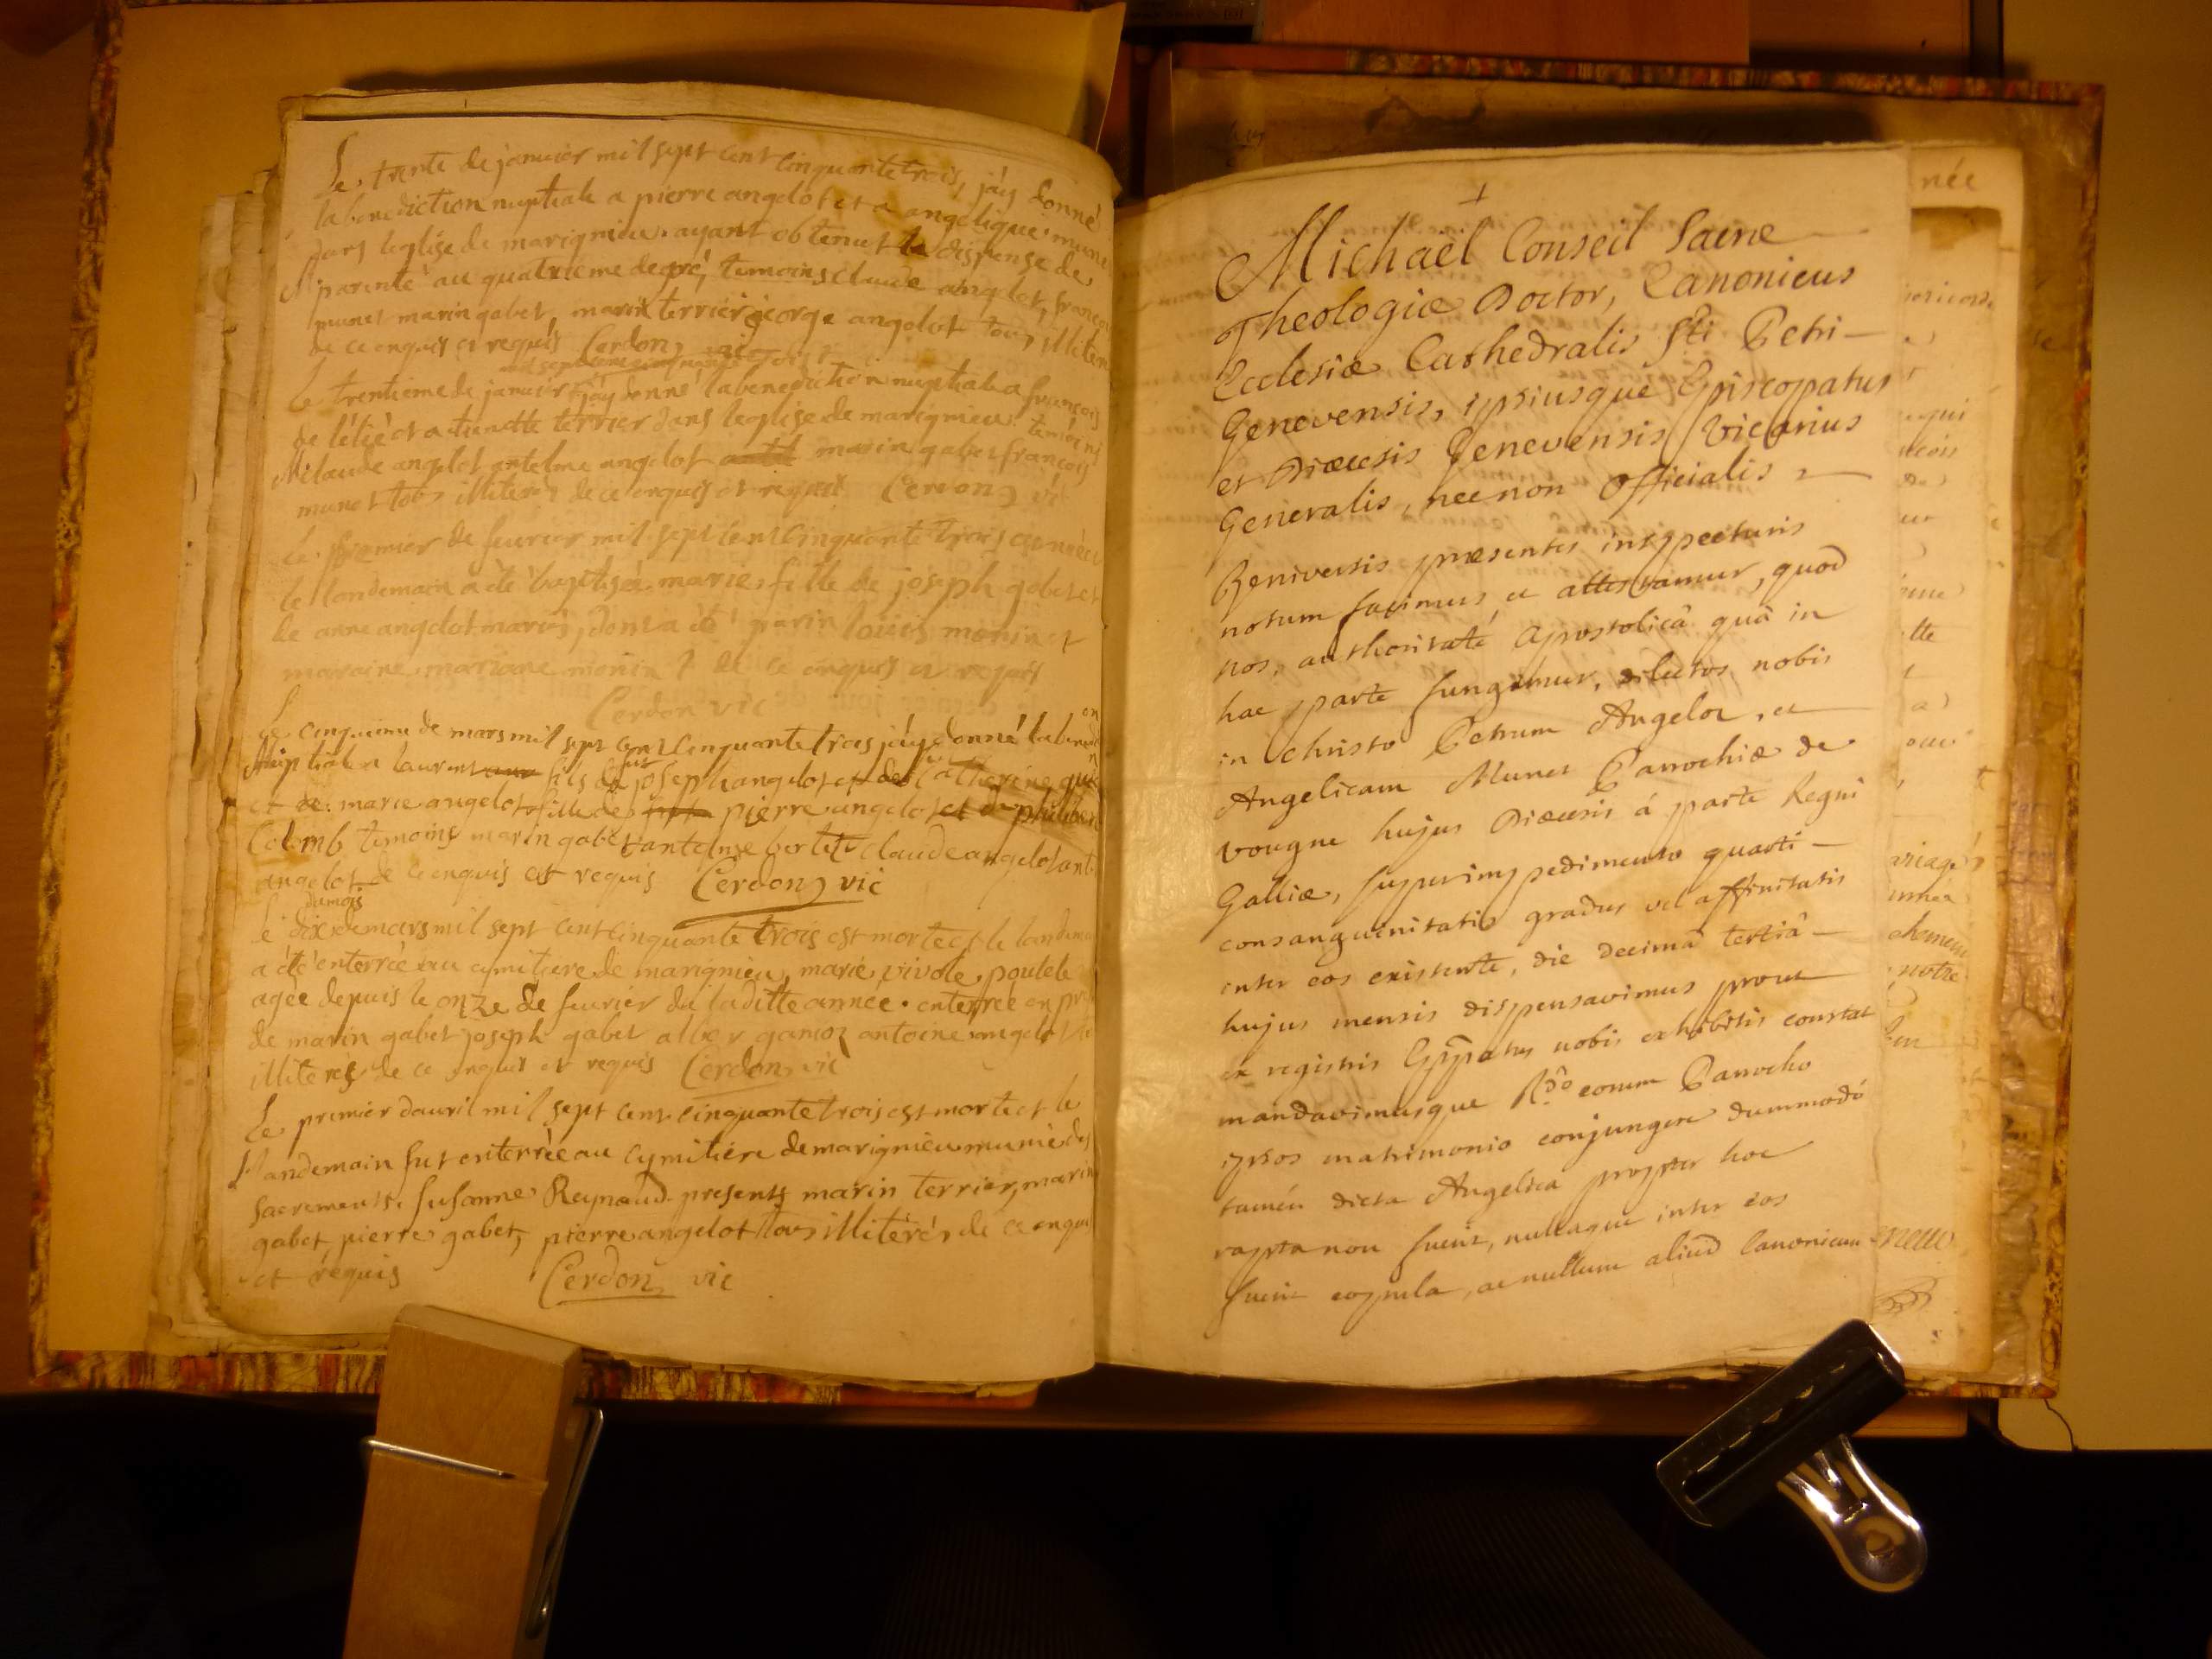 Le trente de janvier mil sept cent cinquante trois, j'ay donné
la benediction nuptiale a pierre angelot et a angelique munet
dans leglise de marignieu. ayant obtenut la dispense de
M parenté au quatrieme degré, temoins claude anglot, françois
munet marin gabet, marin terrier george angelot tous illiteré
de ce enquis et requis Cerdon vic
mil sept cent cinquante trois
Le trentieme de janvier j'ay donné la benediction nuptiale a françois
de l'étié et a tienette terrier dans leglise de marignieu temoins
M claude anglot antelme angelot marin gabet françois
munet tous illiterés de ce enquis et requis Cerdon vic
Le premier de fevrier mil sept cent cinquante trois est née et
le landemain a été baptisée marie fille de joseph gabet et
de anne angelot mariés, dont a été parin louis monin et
maraine mariane monin de ce enquis et requis
Cerdon vic
on
Le cinquieme de mars mil sept cent cinquante trois j'ay donné la benedi
Nuptiale a laurent fils de fut joseph angelot et de catherine
et de marie angelot fille de pierre angelot et de philiber
Colomb temoins marin gabet antelme bertet claude angelot ant
angelot de ce enquis et requis Cerdon vic
du mois
Le dix de mars mil sept cent cinquante trois est morte et le landema
a été enterrée au cymitiere de marignieu, marie vivole poulele
agée depuis le onze de fevrier de laditte année. enterrée en pr
de marin gabet joseph gabet alber antoine angelot
illiterés de ce enquis et requis Cerdon vic
Le premier d'avril mil sept cent cinquante trois est morte et le
landemain fut enterrée au cymitiére de marignieu munie des
sacrements, susanne Reynaud presents marin terrier, marin
gabet pierre gabet, pierre angelot tous illiterés de ce enquis
et requis Cerdon vic
+
Michaël Conseil Sacræ
Theologiæ Doctor, Canonicus
Ecclesiæ Cathedralis Sti Petri
Genevensis, ipsiusque Episcopatus
et Diœcesis Genevensis Vicarius
Generalis, necnon Officialis
Universis præsentes inspecturis
notum facimus, et attestamur, quod
nos, authoritate Apostolicâ quâ in
hac parte fungimur, dilectos nobis
in christo Petrum Angeloz, et
Angelicam Munet Parrochiæ de
vougne hujus Diœcesis á parte Regni
Galliæ, super impedimento quarti
consanguinitatis gradus vel affinitatis
inter eos existente, die decimâ tertiâ
hujus mensis dispensavimus prout
ex registris Eppatus nobis exhibitis constat
mandavimusque Rdo eorum Parrocho
ipsos matrimonio conjungere dummodó
tamén dicta Angelica propter hoc
rapta non fuerit, nullaque inter eos
fuerit copula, ac nullum aliud Canonicum
née